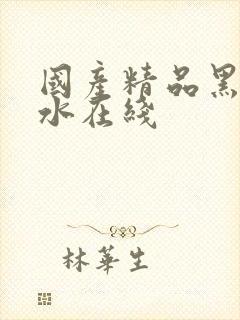 國產精品黑
水在綫
林華生